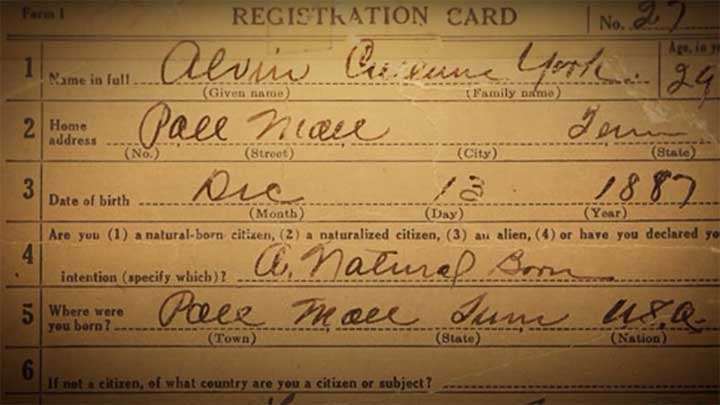 Form 1 REGISTRATION CARD No. 27
1 Name in full Alvin Cullium York. Age, in y
29
(Given name) (Family name)
2 Home address Pall Mall Tenn
(No.) (Street) (City) (State)
3 Date of birth Dec 13 1887
(Month) (Day) (Year)
Are you (1) a natural-born citizen, (2) a naturalized citizen, (3) an alien, (4) or have you declared yo
4 intention (specify which)? A. Natural Born
5 Where were you born? Pall Mall Tenn U.S.A.
(Town) (State) (Nation)
6 If not a citizen, of what country are you a citizen or subject?